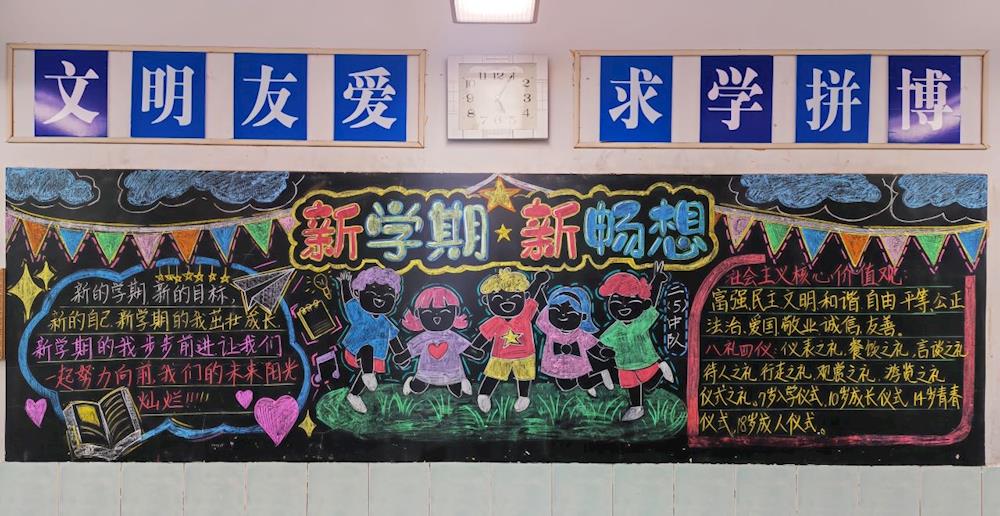 文明友爱
求学拼博
新学期·新畅想
新的学期,新的目标,
新的自己,新学期的我茁壮成长.
新学期的我步步前进让我们
一起努力向前,我们的未来阳光
灿烂!!!!
二5中队
社会主义核心价值观:
富强民主文明,和谐,自由,平等,公正
法治,爱国,敬业,诚信,友善。
八礼四仪:仪表之礼,餐饮之礼,言谈之礼
待人之礼,行走之礼,观赏之礼,游览之礼
仪式之礼。7岁入学仪式,10岁成长仪式,14岁青春
仪式,18岁成人仪式。